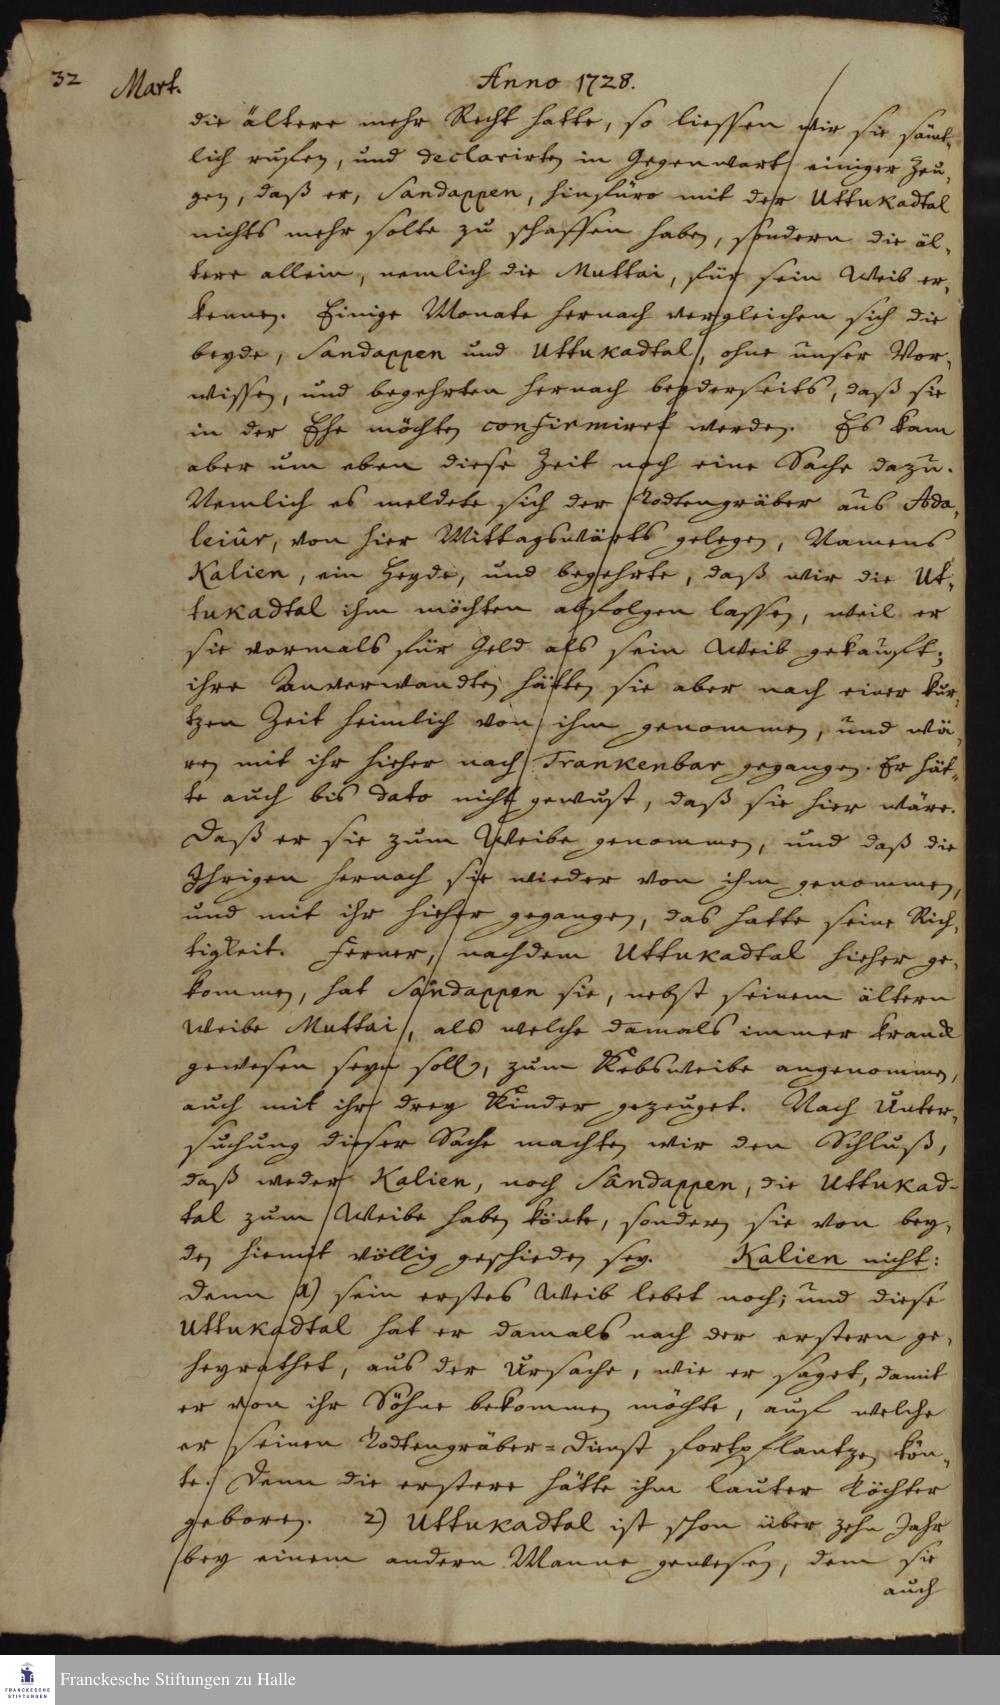 32 Mart. Anno 1728.
die ältere mehr Recht hatte, so liessen wir sie sämt-
lich rufen, und declarirten in Gegenwart einiger Zeu-
gen, daß er, Sandappen, hinfüro mit der Uttukadtal
nichts mehr solte zu schaffen haben, sondern die äl-
tere allein, nemlich die Muttai, für sein Weib er-
kennen. Einige Monate hernach vergleichen sich die
beyde, Sandappen und Uttukadtal, ohne unser Vor-
wissen, und begehrten hernach beyderseits, daß sie
in der Ehe möchten confirmiret werden. Es kam
aber um eben diese Zeit noch eine Sache dazu.
Nemlich es meldete sich der Todtengräber aus Ada-
leiûr, von hier Mittagswärts gelegen, Namens
Kalien, ein Heyde, und begehrte, daß wir die Ut-
tukadtal ihm möchten abfolgen lassen, weil er
sie vormals für Geld als sein Weib gekauft;
ihre Anverwandten hätten sie aber nach einer kur-
tzen Zeit heimlich von ihm genommen, und wä-
ren mit ihr hieher nach Trankenbar gegangen. Er hät-
te auch bis dato nicht gewust, daß sie hier wäre.
Daß er sie zum Weibe genommen, und daß die
Ihrigen hernach sie wieder von ihm genommen,
und mit ihr hieher gegangen, das hatte seine Rich-
tigkeit. Ferner, nachdem Uttukadtal hieher ge-
kommen, hat Sandappen sie, nebst seinem ältern
Weibe Muttai, als welche damals immer kranck
gewesen seyn soll, zum Kebsweibe angenommen,
auch mit ihr drey Kinder gezeuget. Nach Unter-
suchung dieser Sache machten wir den Schluß,
daß weder Kalien, noch Sandappen, die Uttukad-
tal zum Weibe haben könte, sondern sie von bey-
den hiemit völlig geschieden sey. Kalien nicht:
denn 1) sein erstes Weib lebet noch; und diese
Uttukadtal hat er damals nach der erstern ge-
heyrathet, aus der Ursache, wie er saget, damit
er von ihr Söhne bekommen möchte, auf welche
er seinen Todtengräber-Dienst fortpflantzen kön-
te. Denn die erstere hätte ihm lauter Töchter
geboren. 2) Uttukadtal ist schon über zehn Jahr
bey einem andern Manne gewesen, dem sie
auch
FRANCKESCHE
STIFTUNGEN
Franckesche Stiftungen zu Halle